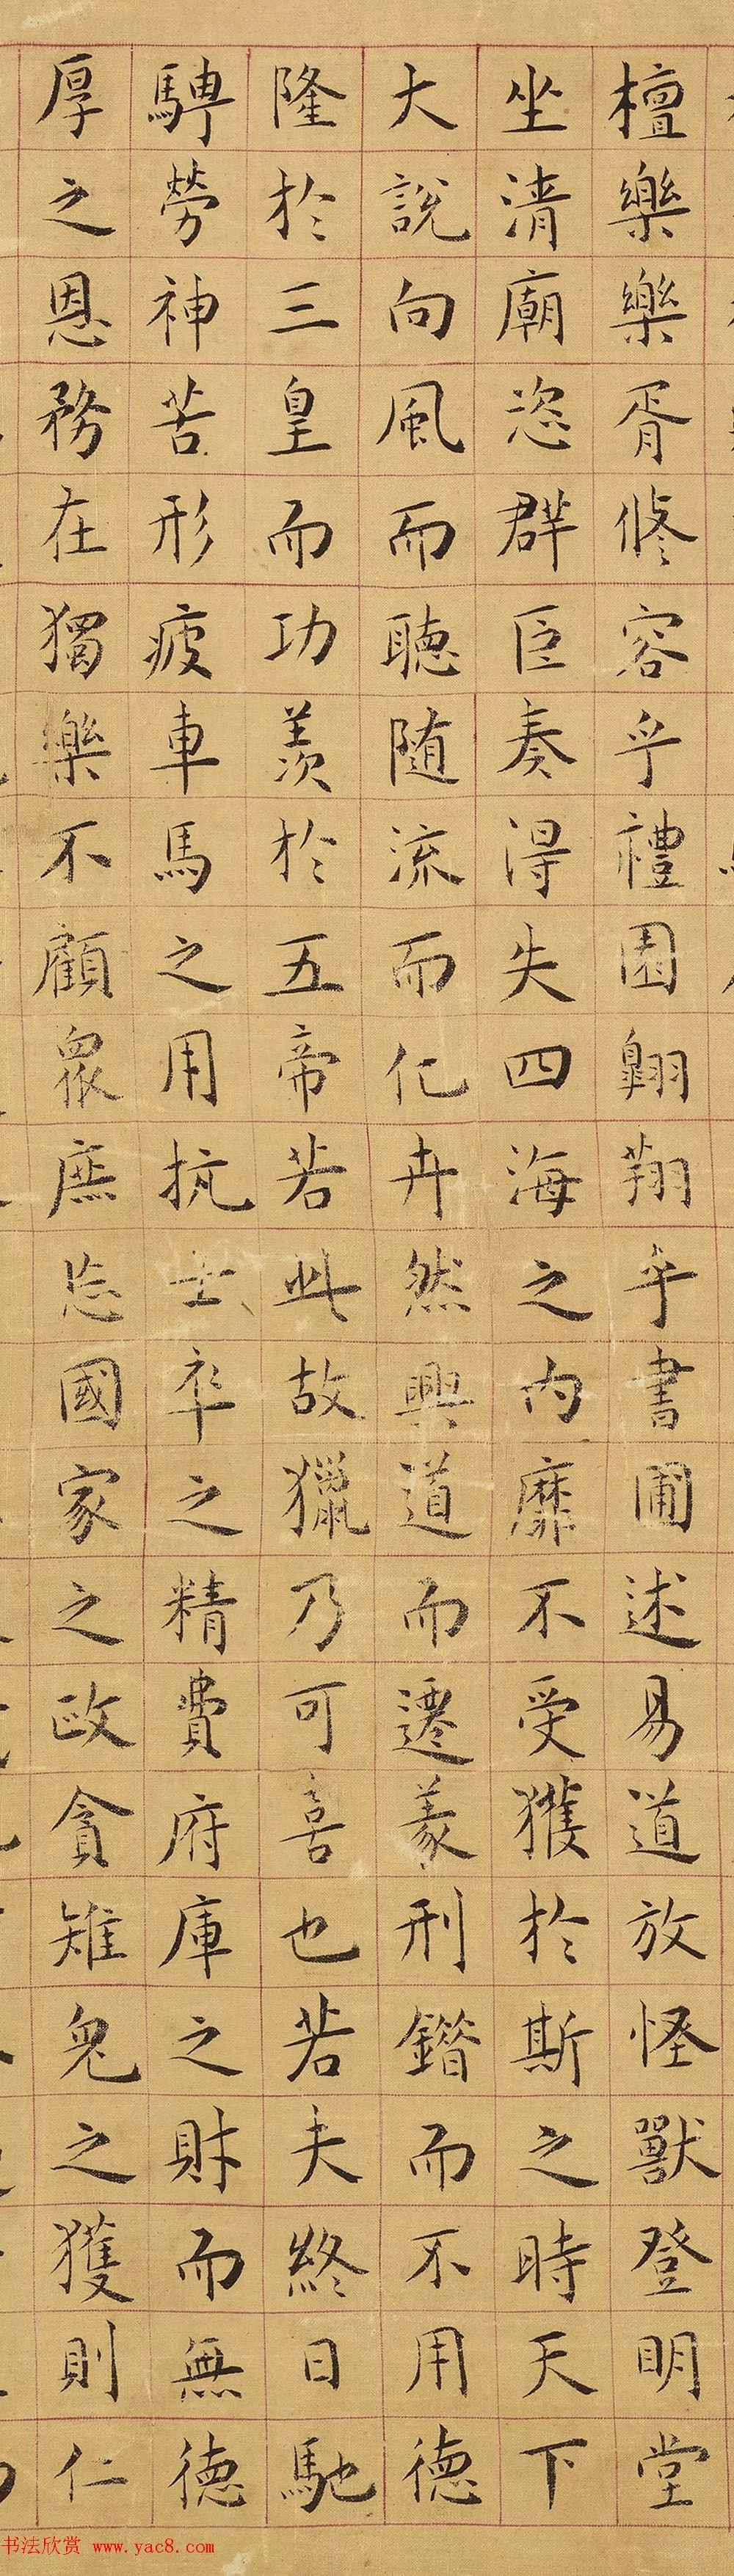 檀樂樂胥修容乎禮園翺翔乎書圃述易道放怪獸登明堂
坐清廟恣群臣奏得失四海之内靡不受獲於斯之時天下
大說向風而聽随流而化卉然興道而遷義刑錯而不用德
隆於三皇而功羨於五帝若此故獵乃可喜也若夫終日馳
騁勞神苦形疲車馬之用抗士卒之精費府庫之財而無德
厚之恩務在獨樂不顧衆庶忘國家之政貪雉兔之獲則仁
书法欣赏 www.yac8.com